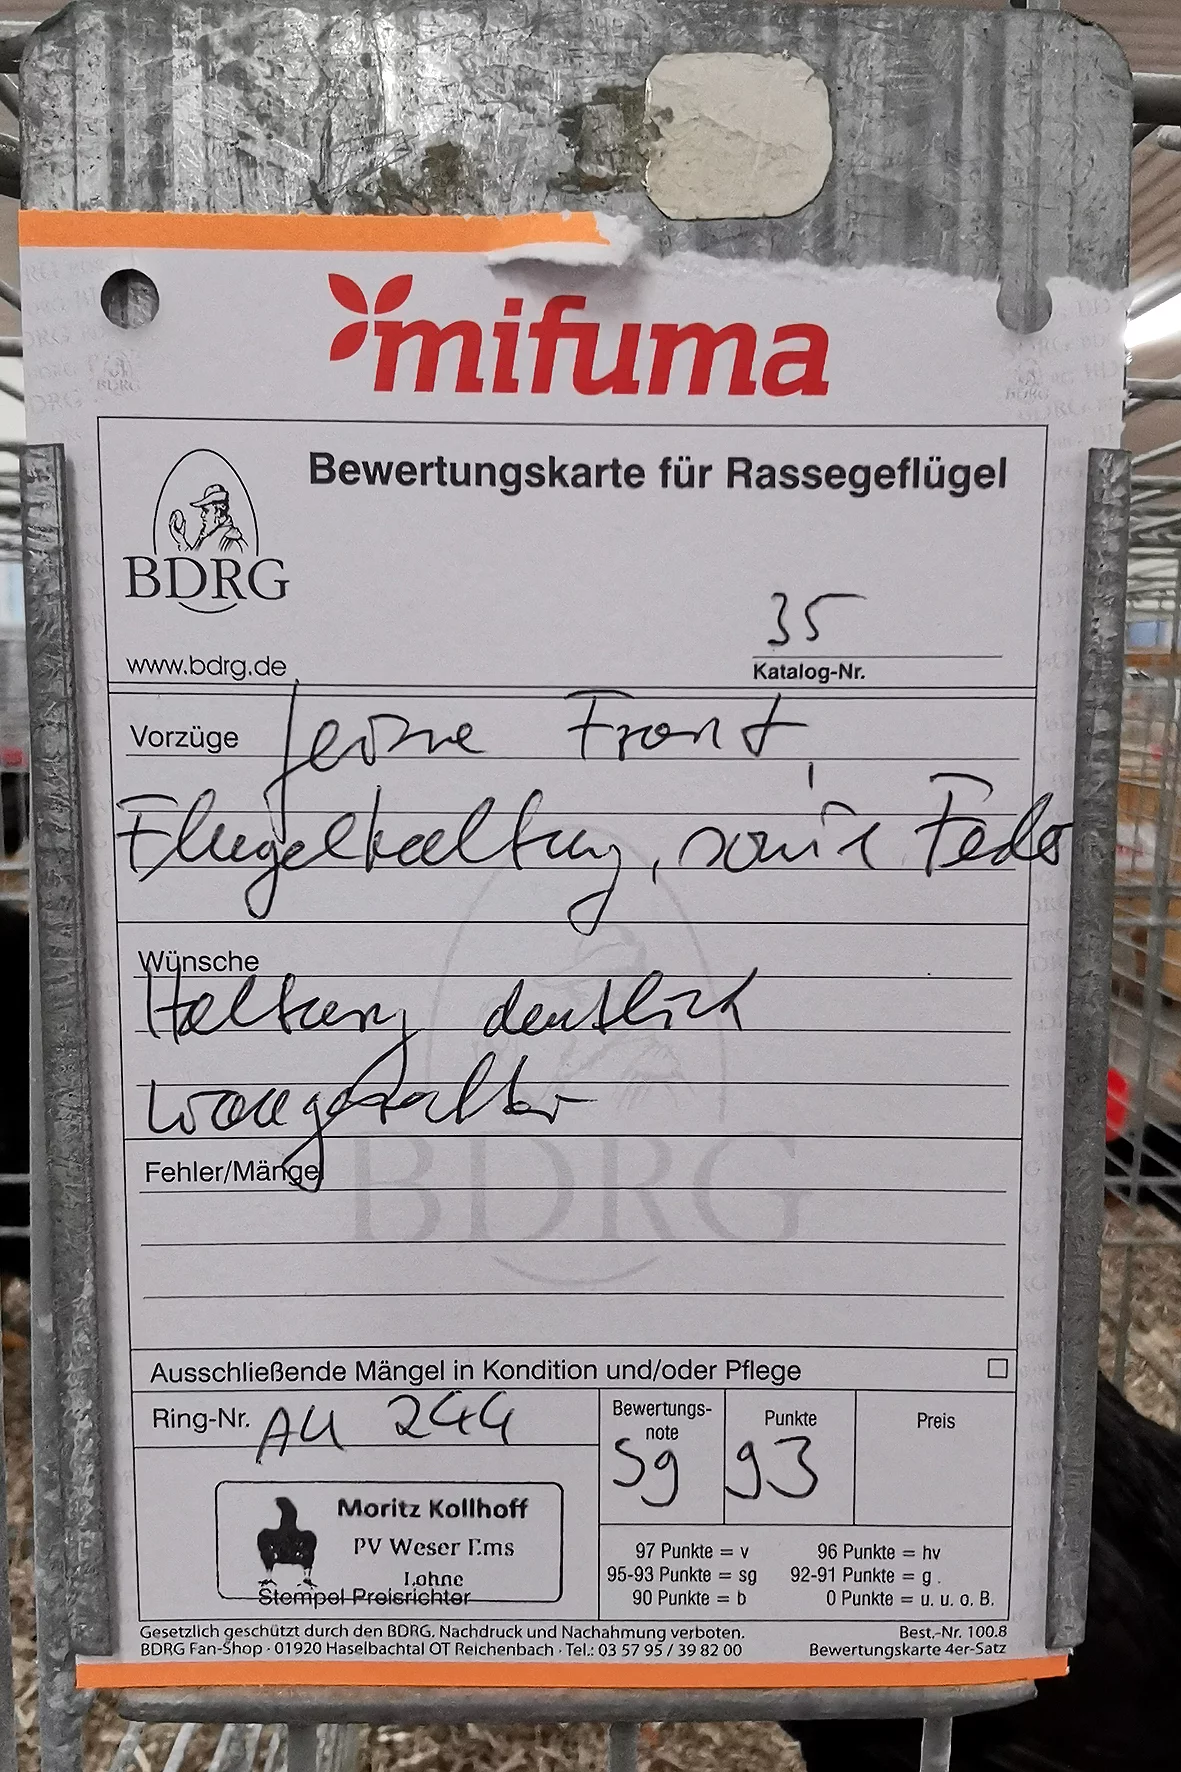 mifuma
Bewertungskarte für Rassegeflügel
BDRG
www.bdrg.de
35
Katalog-Nr.
Vorzüge feine Front,
Flügelhaltung, sowie Feder
Wünsche
Haltung deutlich
waagerechter
Fehler/Mängel
BDRG
Ausschließende Mängel in Kondition und/oder Pflege
Ring-Nr. AU 244
Bewertungs-
note
Sg
Punkte
93
Preis
Moritz Kollhoff
PV Weser Ems
Lohne
Stempel Preisrichter
97 Punkte = v 96 Punkte = hv
95-93 Punkte = sg 92-91 Punkte = g
90 Punkte = b 0 Punkte = u. u. o. B.
Gesetzlich geschützt durch den BDRG. Nachdruck und Nachahmung verboten. Best.-Nr. 100.8
BDRG Fan-Shop · 01920 Haselbachtal OT Reichenbach · Tel.: 03 57 95 / 39 82 00 Bewertungskarte 4er-Satz